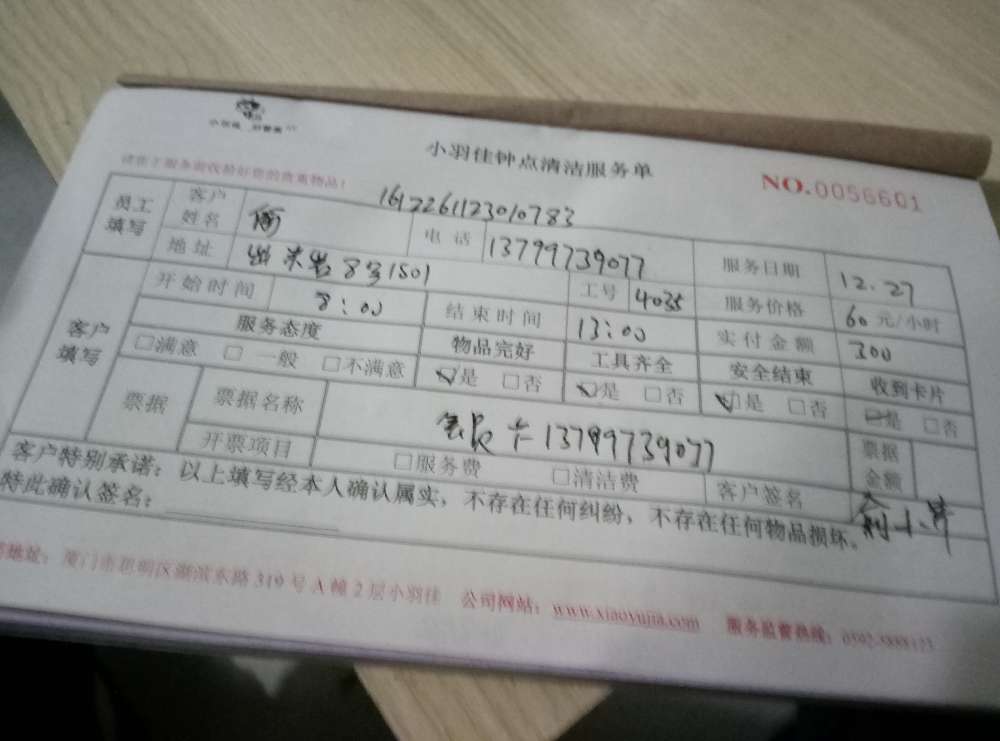 小羽佳钟点清洁服务单
NO.0056601
请在下服务前收拾好您的贵重物品!
1612261123010783
员工填写 客户姓名 电话 13799739077 服务日期 12.27
地址 8号1501 工号 4035 服务价格 60 元/小时
客户填写 开始时间 8:00 结束时间 13:00 实付金额 300
服务态度 物品完好 工具齐全 安全结束 收到卡片
□满意 □一般 □不满意 ☑是 □否 ☑是 □否 ☑是 □否 □是 □否
票据 票据名称 会员卡13799739077 票据金额
开票项目 □服务费 □清洁费 客户签名
客户特别承诺:以上填写经本人确认属实,不存在任何纠纷,不存在任何物品损坏。
特此确认签名:
地址:厦门市思明区湖滨东路319号A幢2层小羽佳 公司网站:www.xiaoyujia.com 服务监督热线: